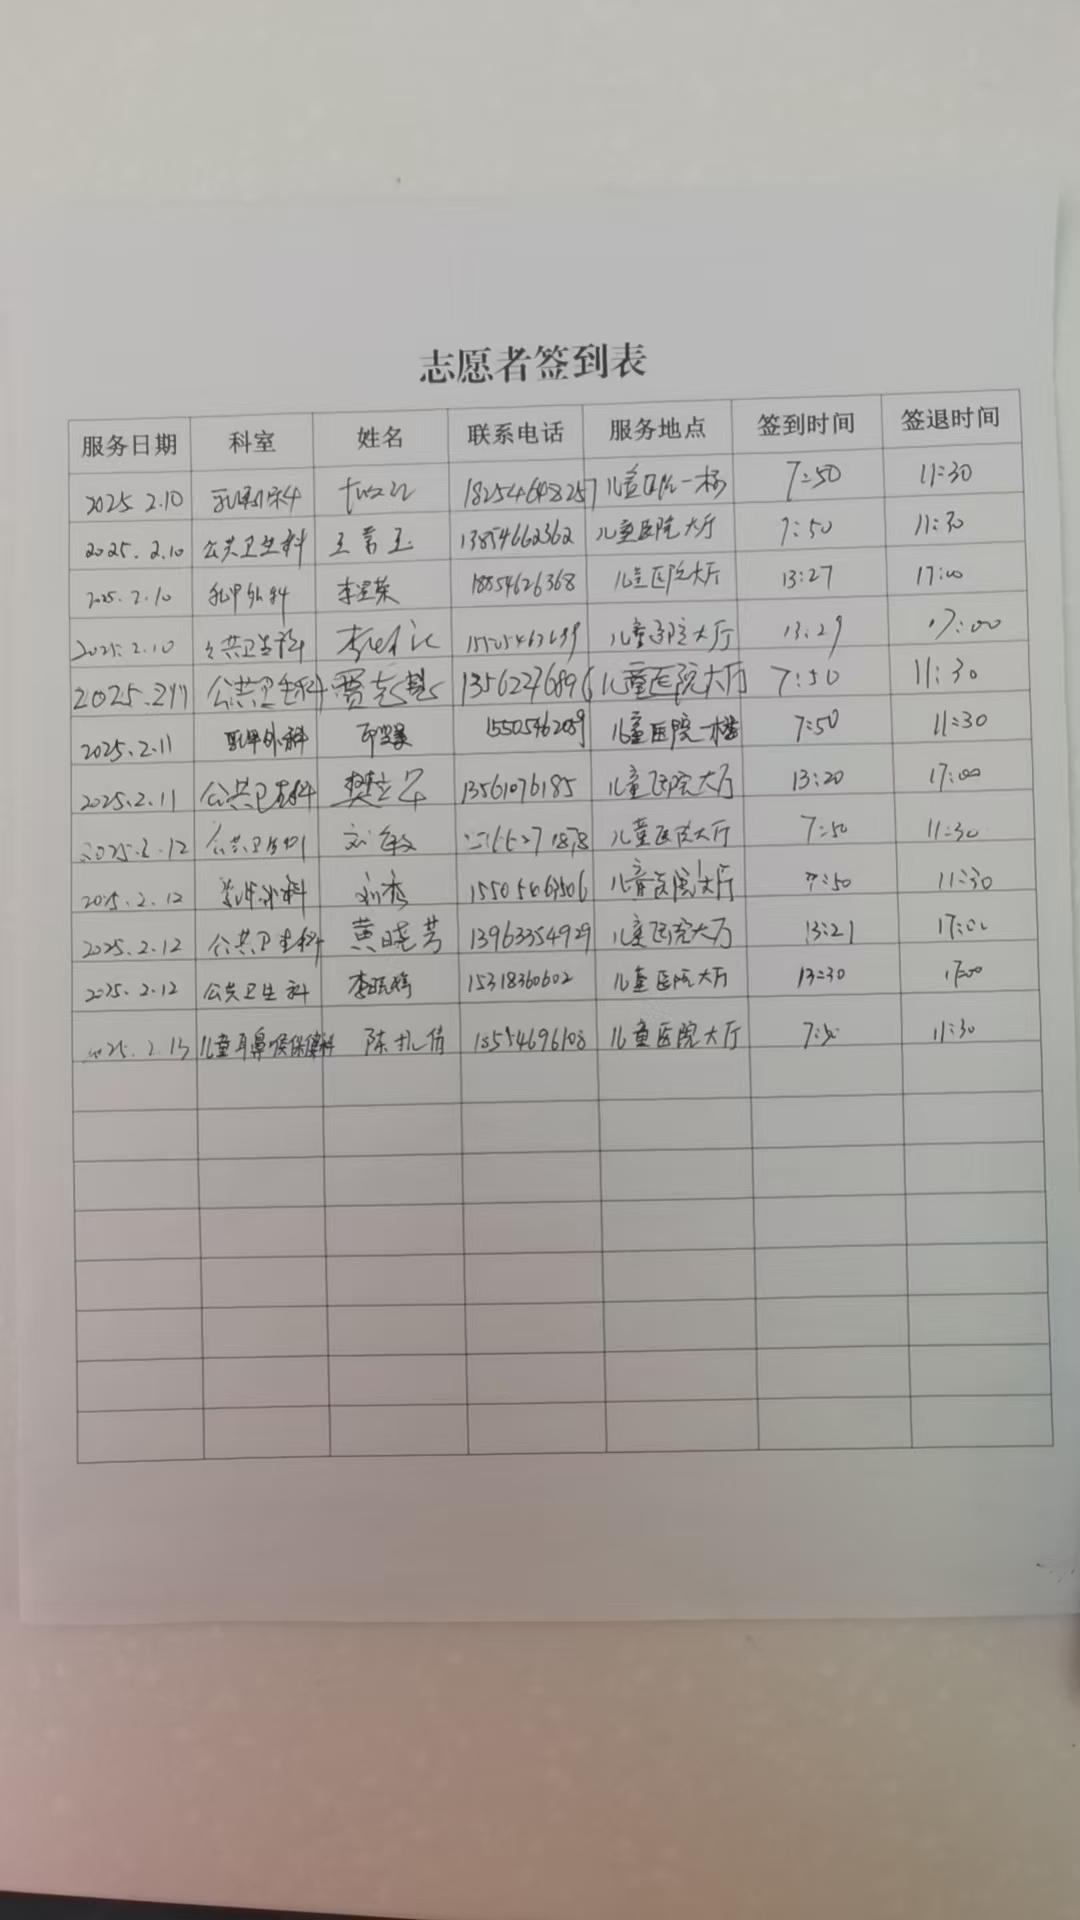 志愿者签到表
服务日期 科室 姓名 联系电话 服务地点 签到时间 签退时间
2025.2.10 18254648257 儿童医院一楼 7:50 11:30
2025.2.10 公共卫生科 13854662362 儿童医院大厅 7:50 11:30
2025.2.10 乳甲外科 李星荣 18854626368 儿童医院大厅 13:27 17:00
2025.2.10 公共卫生科 儿童医院大厅 13:29 17:00
2025.2.11 公共卫生科 贾志慧 13562276896 儿童医院大厅 7:50 11:30
2025.2.11 乳甲外科 15505462089 儿童医院一楼 7:50 11:30
2025.2.11 公共卫生科 13561076185 儿童医院大厅 13:20 17:00
2025.2.12 公共卫生科 刘敏 儿童医院大厅 7:50 11:30
2025.2.12 刘秀 15505463506 儿童医院大厅 7:50 11:30
2025.2.12 公共卫生科 黄晓芳 13963354929 儿童医院大厅 13:21 17:00
2025.2.12 公共卫生科 15318360602 儿童医院大厅 13:30 17:00
2025.2.13 儿童耳鼻喉保健科 18554696108 儿童医院大厅 7:50 11:30